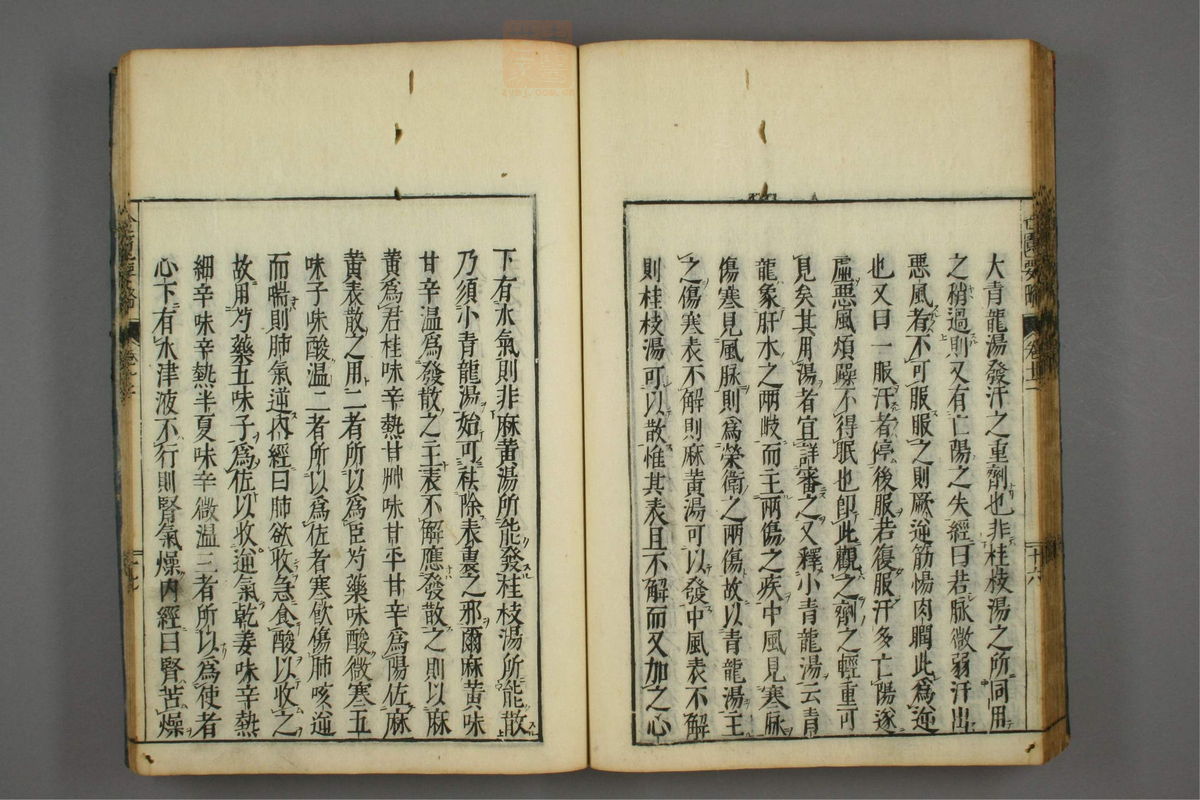 大青龍湯發汗之重劑也非桂枝湯之所同用
之稍過則又有亡陽之失經曰若脉微弱汗出
惡風者不可服服之則厥逆筋惕肉瞤此爲逆
也又曰一服汗者停後服若復服汗多亡陽遂
虛惡風煩躁不得眠也卽此觀之劑之輕重可
見矣其用湯者宜詳審之又釋小青龍湯云青
龍象肝木之兩岐而主兩傷之疾中風見寒脉
傷寒見風脉則爲榮衛之兩傷故以青龍湯主
之傷寒表不解則麻黃湯可以發中風表不解
則桂枝湯可以散惟其表且不解而又加之心
下有水氣則非麻黃湯所能發桂枝湯所能散
乃須小青龍湯始可祛除表裏之邪爾麻黃味
甘辛溫爲發散之主表不解應發散之則以麻
黃爲君桂味辛熱甘艸味甘平甘辛爲陽佐麻
黃表散之用二者所以爲臣芍藥味酸微寒五
味子味酸溫二者所以爲佐者寒飲傷肺咳逆
而喘則肺氣逆內經曰肺欲收急食酸以收之
故用芍藥五味子爲佐以收逆氣乾姜味辛熱
細辛味辛熱半夏味辛微溫三者所以爲使者
心下有水津液不行則腎氣燥內經曰腎苦燥